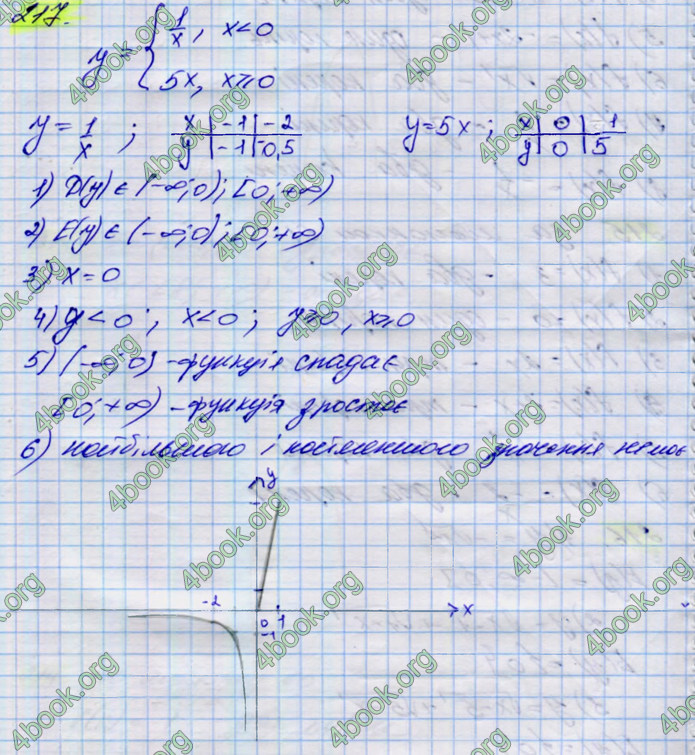 217.
y = { 1/x, x<0
5x, x⩾0
y = 1/x ; x | -1 | -2 y=5x ; x | 0 | 1
y | -1 | -0,5 y | 0 | 5
1) D(y) ∈ (-∞; 0) ; [0; +∞)
2) E(y) ∈ (-∞; 0) ; [0; +∞)
3) x = 0
4) y < 0 ; x<0 ; y⩾0, x⩾0
5) (-∞; 0) - функція спадає
[0; +∞) - функція зростає
6) найбільшого і найменшого значення немає
y
-2 x
0 1
-1
4book.org